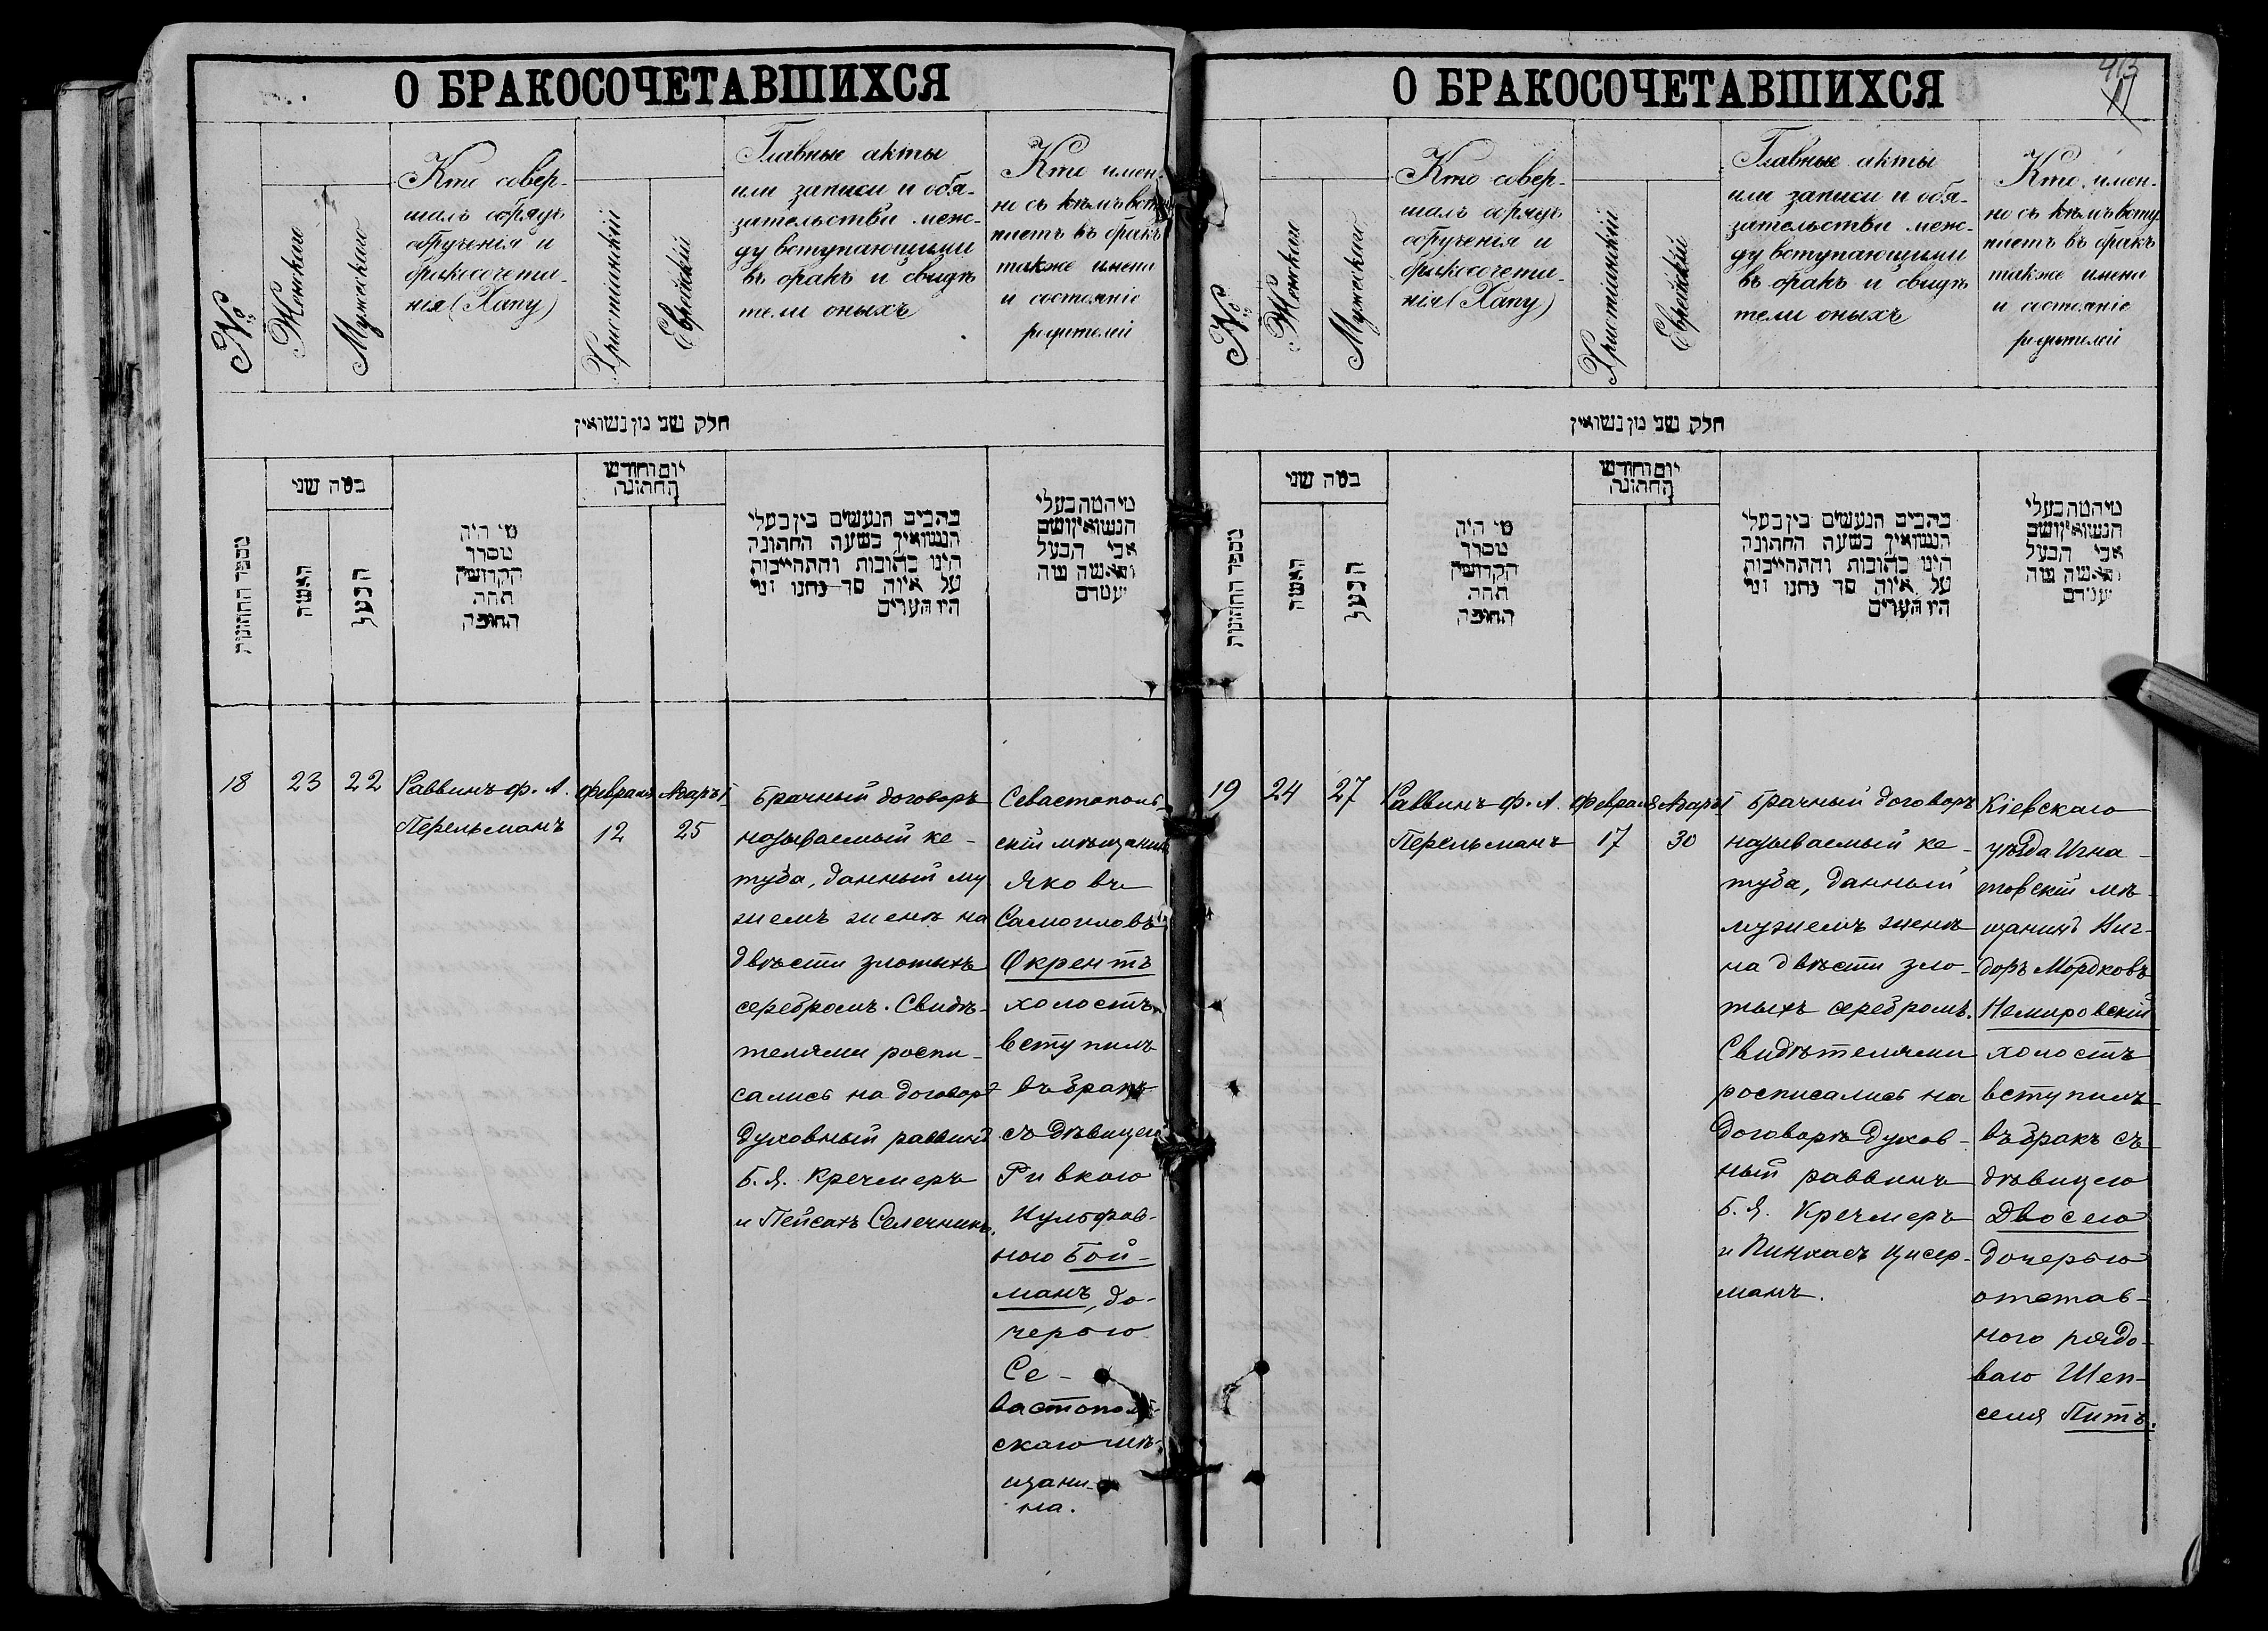 О БРАКОСОЧЕТАВШИХСЯ
№
Женскаго
Мужескаго
Кто совер-
шалъ обрядъ
обрученія и
бракосочета-
нія (Хапу)
Христіанскій
Еврейскій
Главные акты
или записи и обя-
зательства меж-
ду вступающими
въ бракъ и свидѣ
тели оныхъ
Кто имен-
но съ кѣмъ всту
паетъ въ бракъ
также имена
и состояніе
родителей
חלק שני מן נשואין
מספר החתונות
כמה שני
האשה
הבעל
מי היה
מסדר
הקדושין
תחת
החופה
יום וחודש
החתונה
כתבים הנעשים בין בעלי
הנשואין בשעת החתונה
היינו כתובות והתחייבות
על איזה סך נתנו ומי
היו העדים
מי המה בעלי
הנשואין ושם
אבי הבעל
והאשה
18
23
22
Раввинъ Ф. А.
Перельманъ
Февраля
12
Адаръ I
25
Брачный договоръ
называемый ке-
туба, данный му
жемъ женѣ на
двѣсти злотыхъ
серебромъ. Свидѣ-
телями роспи-
сались на договорѣ
духовный раввинъ
Б. Я. Кречмеръ
и Пейсахъ Селечникъ.
Севастополь-
скій мѣщанинъ
Яковъ
Самоиловъ
Окрентъ
холостъ
вступилъ
въ бракъ
съ дѣвицею
Ривкою
Нультфав-
ною Бой-
манъ, до-
черью
Се-
вастополь-
скаго мѣ-
щани-
на.
О БРАКОСОЧЕТАВШИХСЯ
413
11
№
Женскаго
Мужескаго
Кто совер-
шалъ обрядъ
обрученія и
бракосочета-
нія (Хапу)
Христіанскій
Еврейскій
Главные акты
или записи и обя-
зательства меж-
ду вступающими
въ бракъ и свидѣ
тели оныхъ
Кто имен-
но съ кѣмъ всту
паетъ въ бракъ
также имена
и состояніе
родителей
חלק שני מן נשואין
מספר החתונות
כמה שני
האשה
הבעל
מי היה
מסדר
הקדושין
תחת
החופה
יום וחודש
החתונה
כתבים הנעשים בין בעלי
הנשואין בשעת החתונה
היינו כתובות והתחייבות
על איזה סך נתנו ומי
היו העדים
מי המה בעלי
הנשואין ושם
אבי הבעל
והאשה
19
24
27
Раввинъ Ф. А.
Перельманъ
Февраля
17
Адаръ I
30
Брачный договоръ
называемый ке-
туба, данный
мужемъ женѣ
на двѣсти зло-
тыхъ серебромъ.
Свидѣтелями
росписались на
договорѣ духов-
ный раввинъ
Б. Я. Кречмеръ
и Пинхасъ Цисер-
манъ.
Кіевскаго
уѣзда Игна-
товскій мѣ-
щанинъ Виг-
доръ Мордковъ
Немировскій
холостъ
вступилъ
въ бракъ съ
дѣвицею
Двосею
дочерью
отстав-
ного рядо-
ваго Шеп-
селя Питъ.